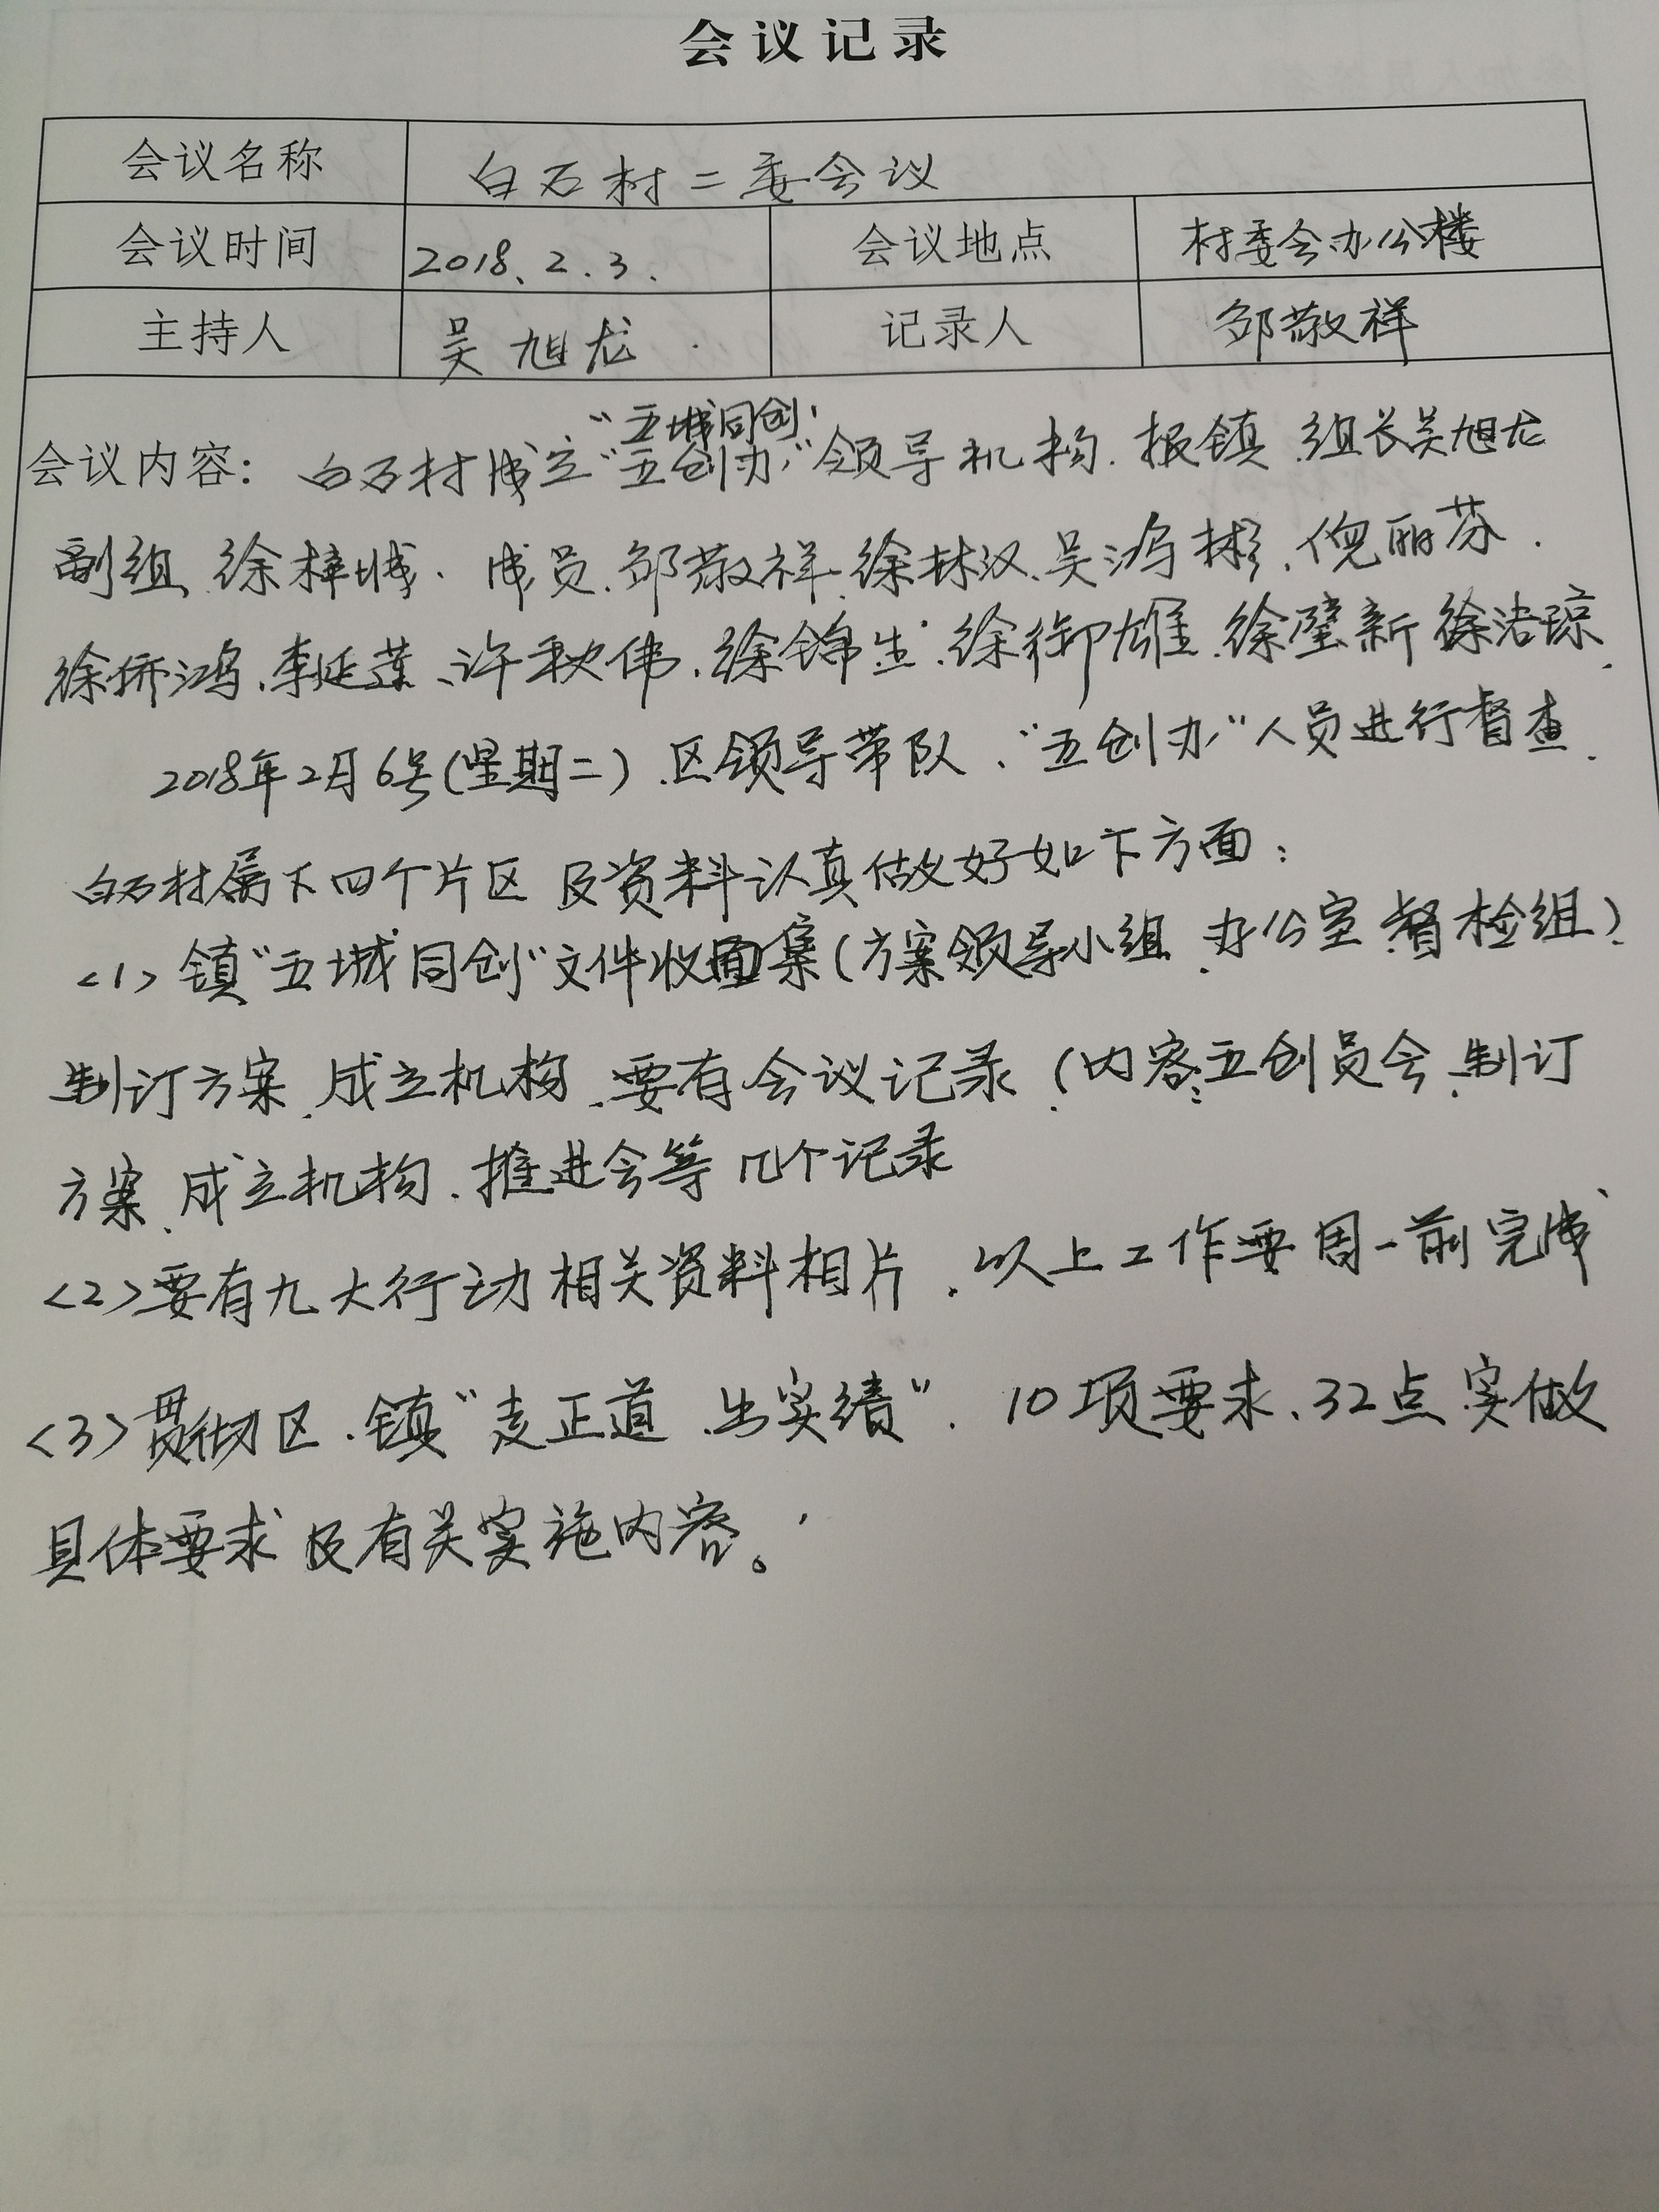 会议记录
会议名称 白石村二委会议
会议时间 2018.2.3. 会议地点 村委会办公楼
主持人 吴旭龙 记录人 邹敬祥
"五城同创"
会议内容: 白石村成立"五创办"领导机构.报镇.组长吴旭龙
副组 徐梓城. 成员.邹敬祥.徐林汉.吴鸿彬.倪丽芬.
徐侨鸿.李延莲、许秋伟.徐锦生.徐御雄.徐璧新 徐洁琼.
2018年2月6号(星期二).区领导带队、"五创办"人员进行督查.
白石村属下四个片区 及资料认真做好如下方面:
<1> 镇"五城同创"文件收集(方案领导小组.办公室 督检组)
制订方案.成立机构.要有会议记录(内容:五创员会.制订
方案.成立机构.推进会等几个记录
<2>要有九大行动相关资料相片.以上工作要周一前完成
<3>贯彻区.镇"走正道.出实绩".10项要求、32点实做
具体要求及有关实施内容。